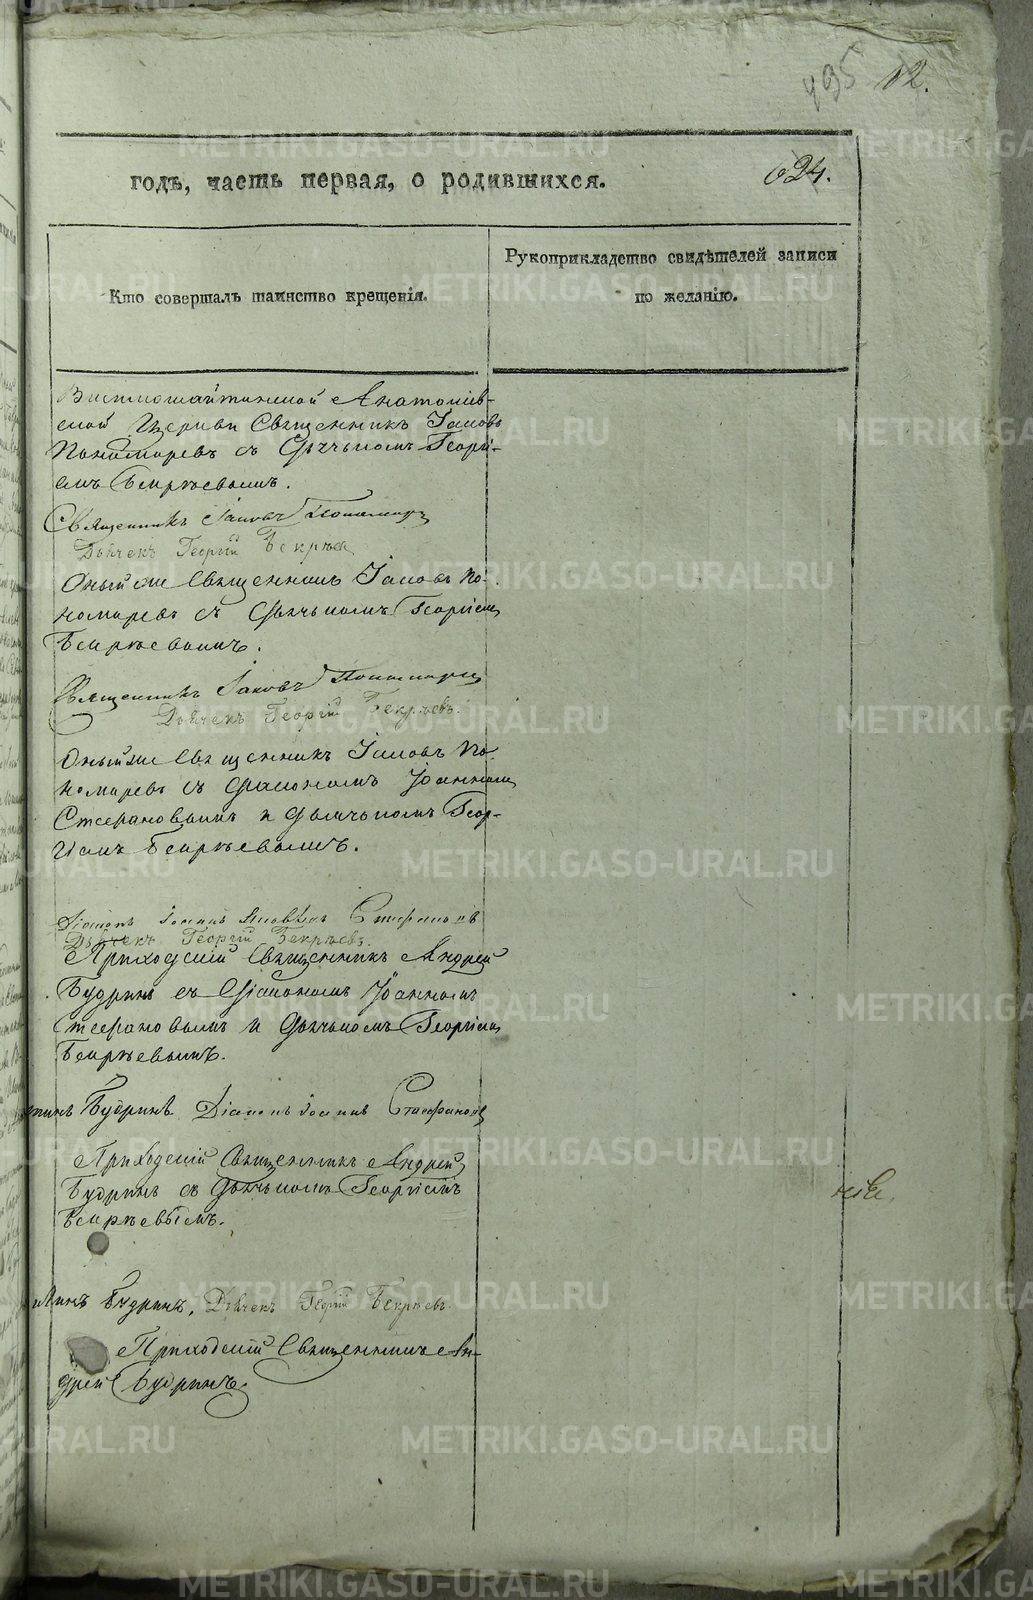 495 12.
годъ, часть первая, о родившихся. 624.
Кто совершалъ таинство крещенія.
Рукоприкладство свидѣтелей записи
по желанію.
Висимошайтинской Анатоліев-
ской Церкви Священникъ Іаковъ
Пономаревъ съ Дьячкомъ Георгі-
емъ Бекрѣевымъ.
Священникъ Іаковъ Пономарев
Дьячекъ Георгій Бекрѣев
Оный же Священникъ Іаковъ По-
номаревъ съ Дьячкомъ Георгіем
Бекрѣевымъ.
Священникъ Іаковъ Пономарев
Дьячекъ Георгій Бекрѣевъ.
Оный же Священникъ Іаковъ По-
номаревъ съ Діакономъ Іоанномъ
Стефановымъ и Дьячкомъ Геор-
гіемъ Бекрѣевымъ.
Діаконъ Іоаннъ Стефановъ
Дьячекъ Георгій Бекрѣевъ.
Приходскій Священникъ Андрей
Будринъ съ Діакономъ Іоанномъ
Стефановымъ и Дьячкомъ Георгіем
Бекрѣевымъ.
Будринъ Діаконъ Іоаннъ Стефановъ
Приходскій Священникъ Андрей
Будринъ съ Дьячкомъ Георгіемъ
Бекрѣевымъ.
Будринъ, Дьячекъ Георгій Бекрѣевъ
Приходскій Священникъ Ан-
дрей Будринъ.
METRIKI.GASO-URAL.RU